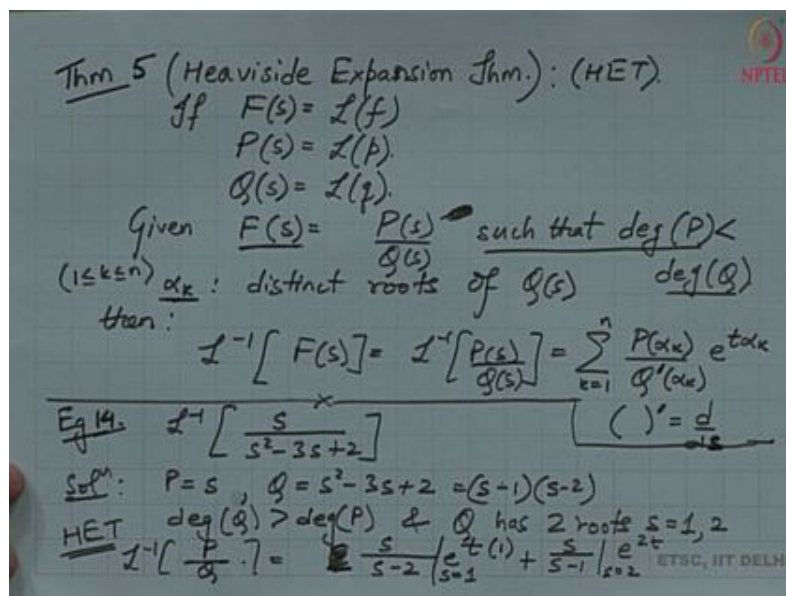 Thm 5 (Heaviside Expansion Thm.): (HET).
NPTEL
If F(s) = L(f)
P(s) = L(p).
Q(s) = L(q).
Given F(s) = P(s)/Q(s) such that deg(P) < deg(Q)
(1≤k≤n) αk : distinct roots of Q(s)
then:
L⁻¹[F(s)] = L⁻¹[P(s)/Q(s)] = Σ_{k=1}^{n} P(αk)/Q'(αk) e^{tαk}
Eg 14. L⁻¹[s/(s²-3s+2)] ( )' = d/ds
Solⁿ: P = s, Q = s²-3s+2 = (s-1)(s-2)
deg(Q) > deg(P) & Q has 2 roots s=1, 2
HET L⁻¹[P/Q.] = s/(s-2)|_{s=1} e^{t(1)} + s/(s-1)|_{s=2} e^{2t}
ETSC, IIT DELH